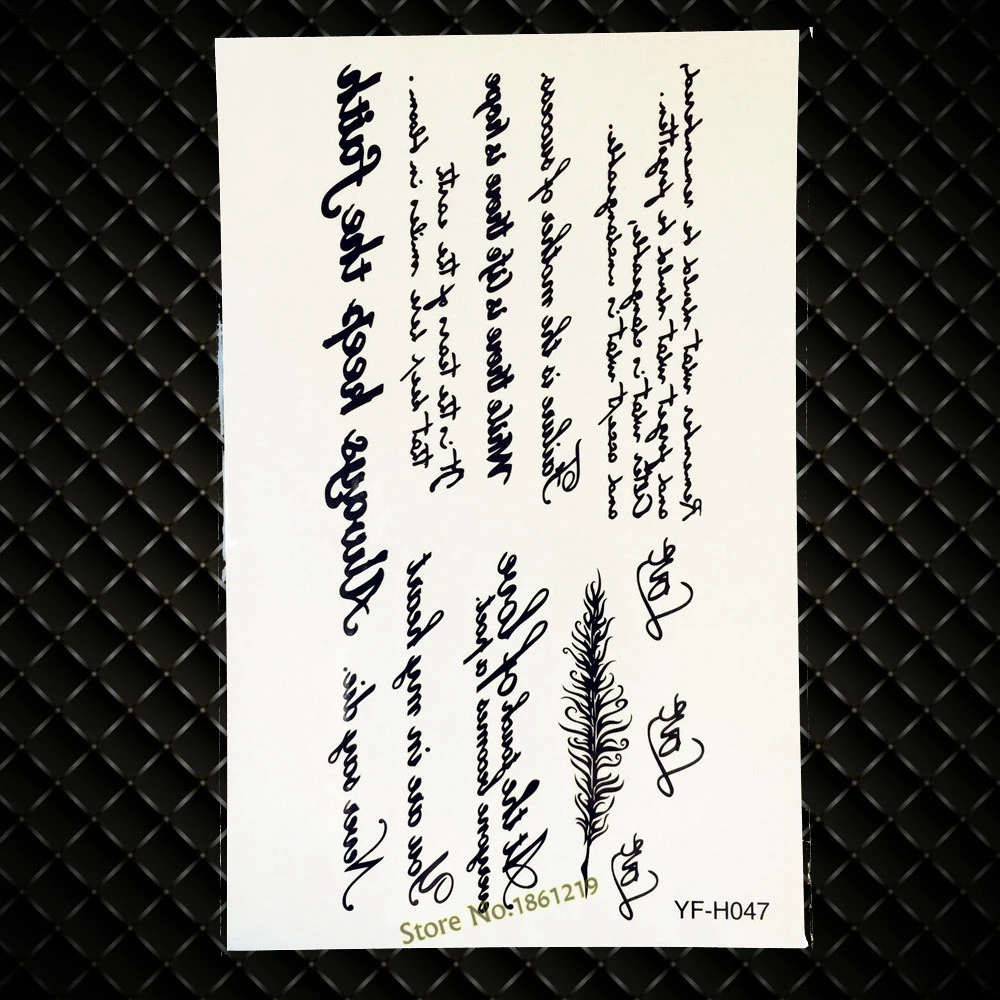 Always keep the Faith
Never say die.
It is the tears of the earth
that keep her smiles in bloom.
You are in my heart
While there is life there is hope
Failure is the mother of success
At the touch of love
everyone becomes a poet.
Remember what should be remembered
and forget what should be forgotten.
Alter what is changeable,
and accept what is unchangeable.
Love
Love
Love
Store No:1861219
YF-H047